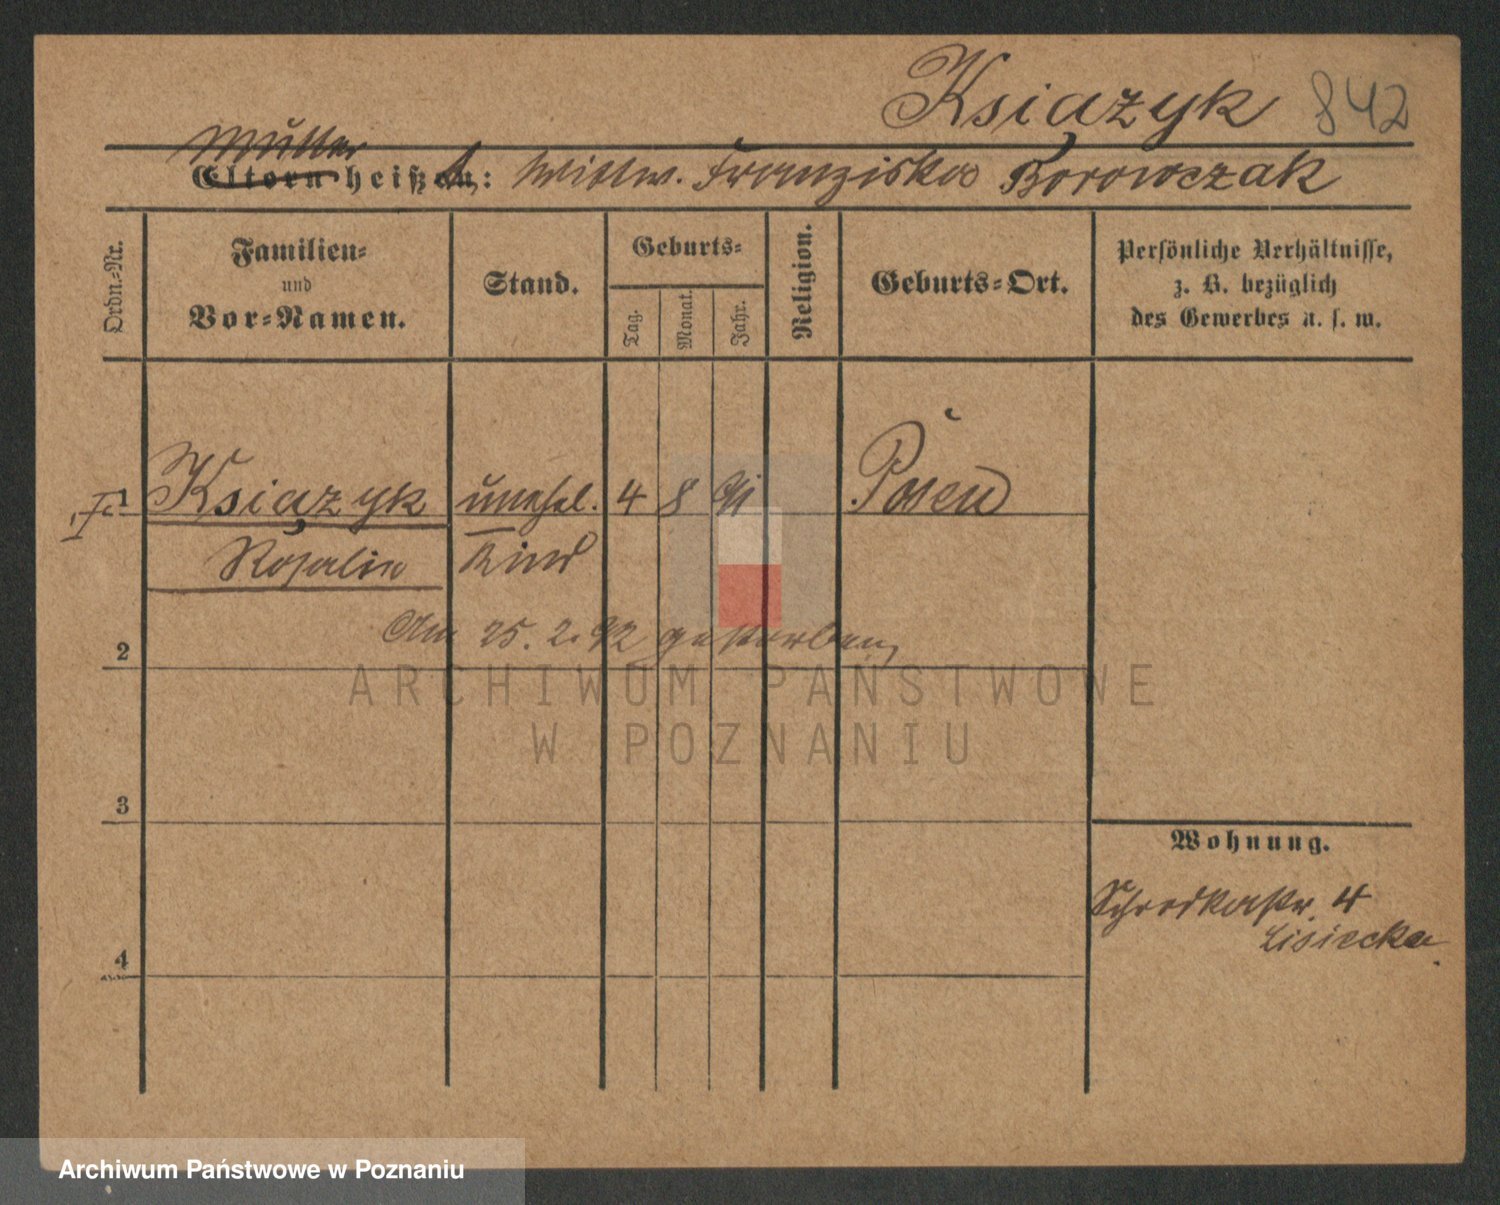 Książyk 842
Mutter
Eltern heißt: Wittw. Franziska Borowczak
Ordn.-Nr.
Familien-
und
Vor-Namen.
Stand.
Geburts-
Tag.
Monat.
Jahr.
Religion.
Geburts-Ort.
Persönliche Verhältnisse,
z. B. bezüglich
des Gewerbes u. s. w.
1 Książyk unehel. 4 8 91 Posen
Rosalie Kind
Am 25. 2. 92 gestorben
2
3
4
Wohnung.
Schrodkastr. 4
Lisiecka
ARCHIWUM PAŃSTWOWE
W POZNANIU
Archiwum Państwowe w Poznaniu